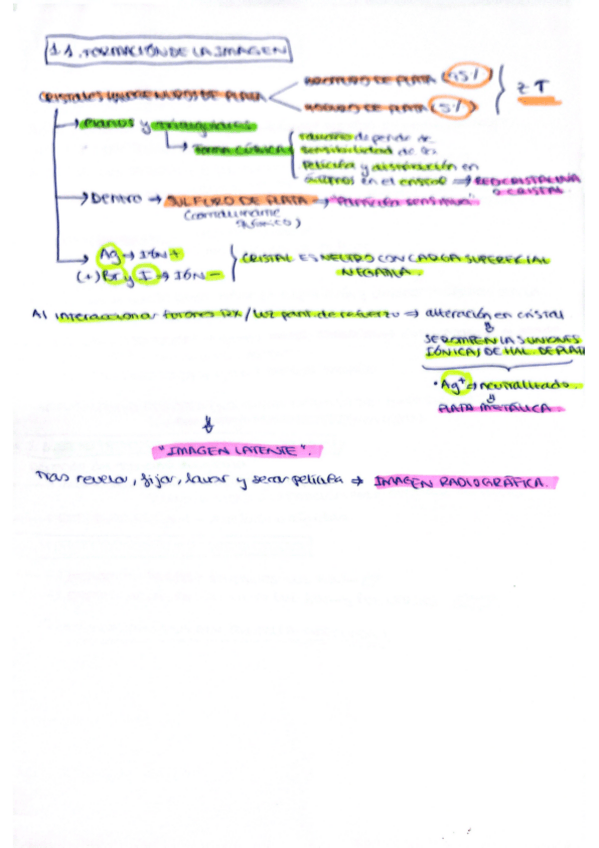 1.1. FORMACIÓN DE LA IMAGEN
CRISTALES HALOGENUROS DE PLATA
BROMURO DE PLATA (95%)
YODURO DE PLATA (5%)
Z↑
→ Planos y triangulares
↳ Forma cúbica
Tamaño depende de
sensibilidad de la
Película y distribución en
átomos en el cristal ⇒ RED CRISTALINA
O CRISTAL.
→ Dentro → SULFURO DE PLATA → "Partícula sensitiva"
→ Ag → IÓN +
(+) Br y I → IÓN −
CRISTAL ES NEUTRO CON CARGA SUPERFICIAL
NEGATIVA.
Al interaccionar fotones Rx / luz pant. de refuerzo ⇒ alteración en cristal
⇓
SE ROMPEN LAS UNIONES
IÓNICAS DE HAL. DE PLATA
• Ag⁺ ⇒ neutralizado.
⇓
PLATA METÁLICA.
⇓
"IMAGEN LATENTE".
Tras revelar, fijar, lavar y secar película ⇒ IMAGEN RADIOGRÁFICA.